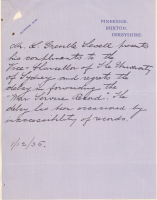 PINEHURST,
BUXTON,
DERBYSHIRE.
Mr. L. Greville Sewell presents
his compliments to the
Vice-Chancellor of The University
of Sydney and regrets the
delay in forwarding the
"War Service Record". The
delay has been occasioned by
inaccessibility of records.
1/12/35.